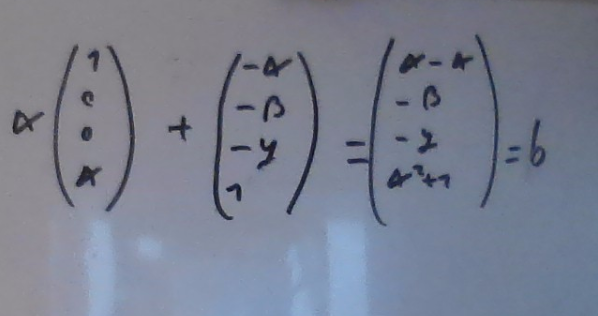 α (1 0 0 α) + (-α -β -γ 1) = (α-α -β -γ α²+1) = b